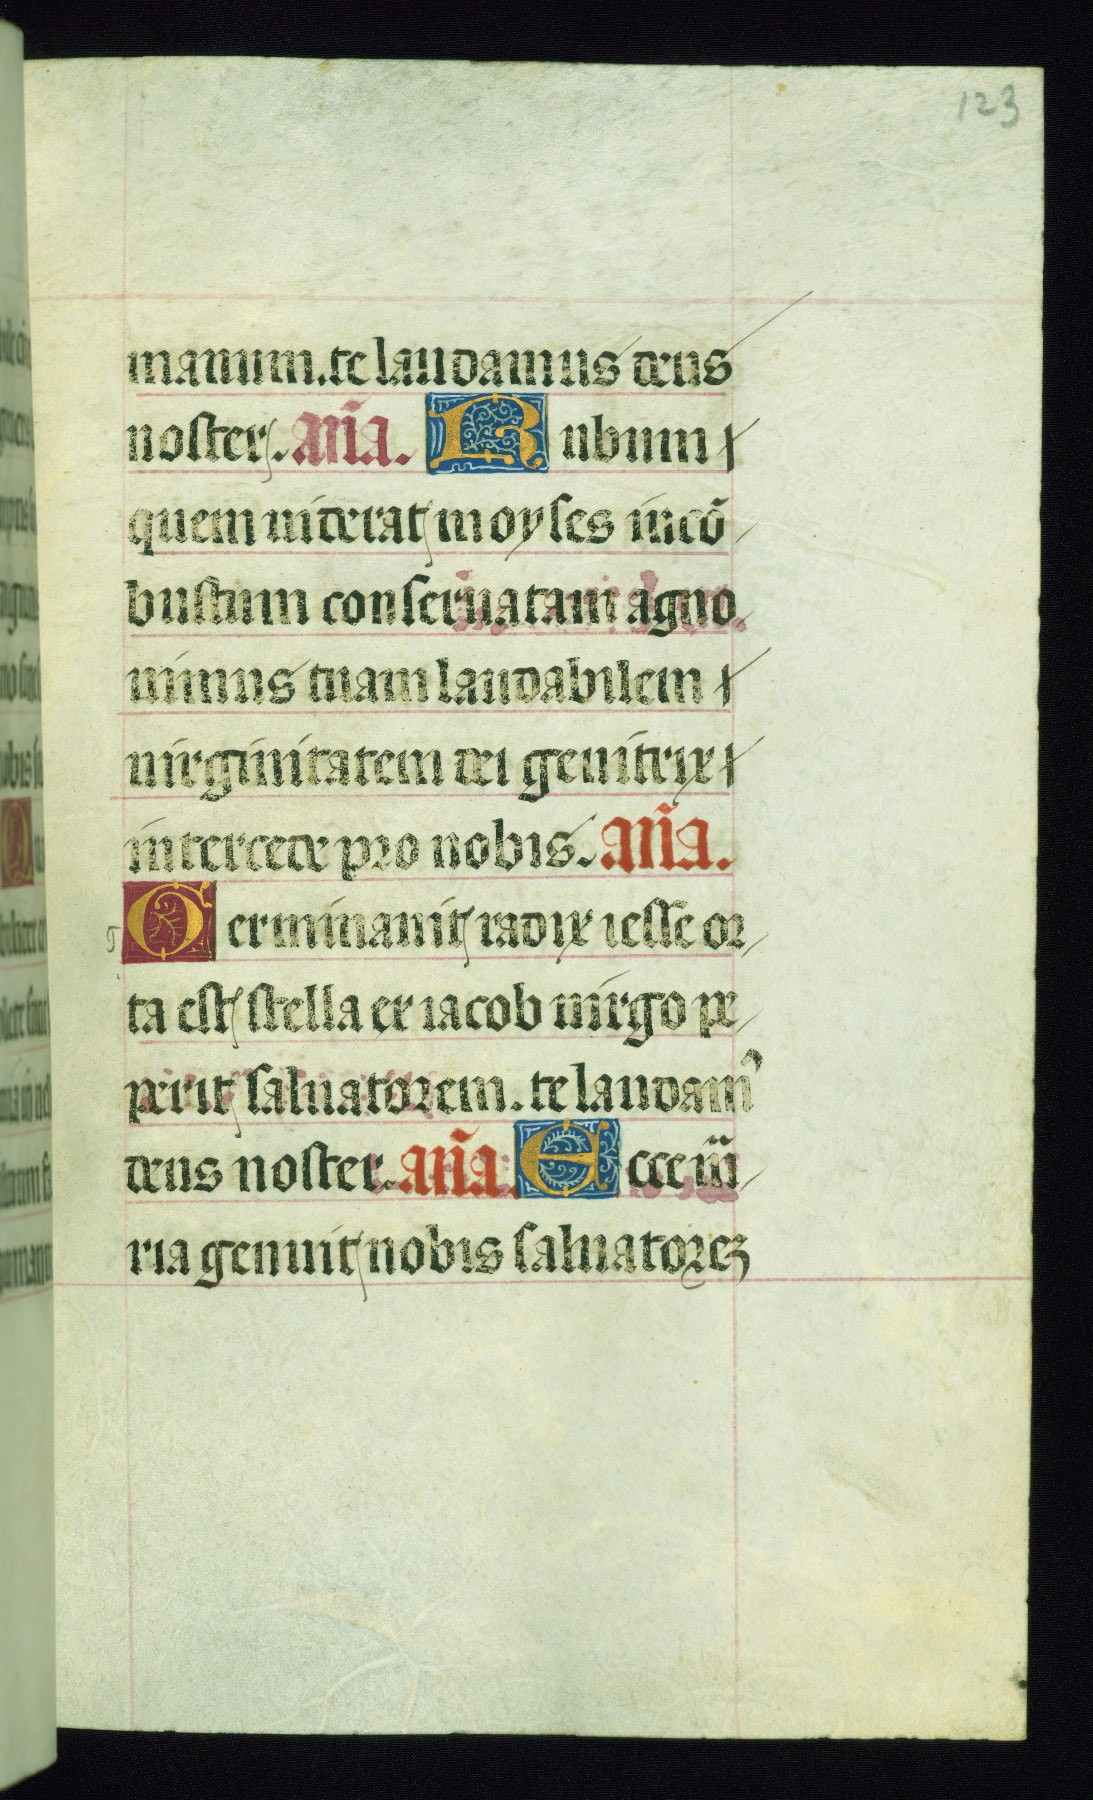 123
manum. te laudamus deus
noster. Aña. Rubum
quem viderat moyses incō
bustum conservatam agno
vimus tuam laudabilem
virginitatem dei genitrix
intercede pro nobis. Aña.
Germinavit radix iesse or
ta est stella ex iacob virgo pe
perit salvatorem. te laudam᾽
deus noster. Aña. Ecce m̃
ria genuit nobis salvatorez